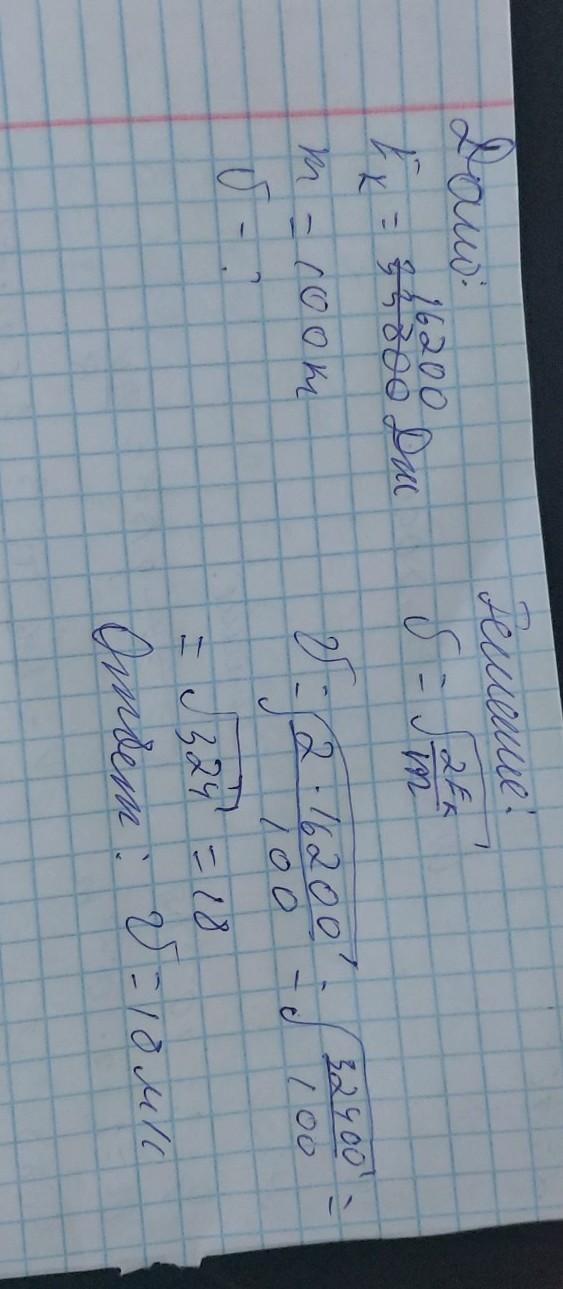 Дано:
Eк = 16200 Дж
m = 100 кг
υ - ?
Решение:
υ = √(2Eк/m)
υ = √(2·16200/100) = √(32400/100) =
= √324 = 18
Ответ: υ = 18 м/с